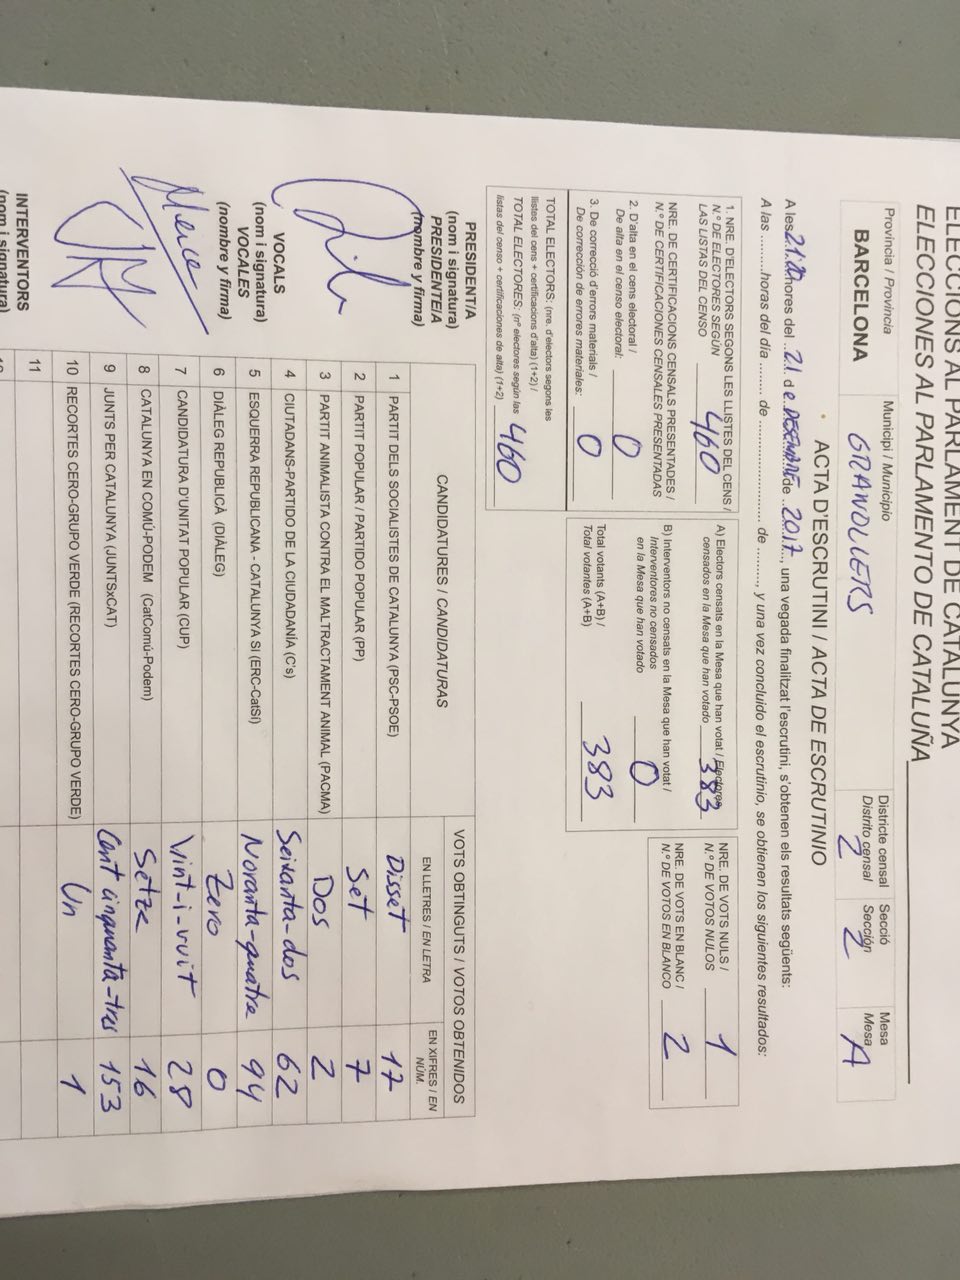 ELECCIONS AL PARLAMENT DE CATALUNYA
ELECCIONES AL PARLAMENTO DE CATALUÑA
Província / Provincia
BARCELONA
Municipi / Municipio
GRANOLLERS
Districte censal
Distrito censal
2
Secció
Sección
2
Mesa
Mesa
A
ACTA D'ESCRUTINI / ACTA DE ESCRUTINIO
A les 21:20 hores del 21 de DESEMBRE de 2017, una vegada finalitzat l'escrutini, s'obtenen els resultats següents:
A las .........horas del día ........ de ........................ de ........., y una vez concluido el escrutinio, se obtienen los siguientes resultados:
1. NRE. D'ELECTORS SEGONS LES LLISTES DEL CENS /
N.º DE ELECTORES SEGÚN
LAS LISTAS DEL CENSO 460
NRE. DE CERTIFICACIONS CENSALS PRESENTADES /
N.º DE CERTIFICACIONES CENSALES PRESENTADAS
2. D'alta en el cens electoral /
De alta en el censo electoral: 0
3. De correcció d'errors materials /
De corrección de errores materiales: 0
TOTAL ELECTORS: (nre. d'electors segons les
llistes del cens + certificacions d'alta) (1+2) /
TOTAL ELECTORES: (nº electores según las
listas del censo + certificaciones de alta) (1+2) 460
A) Electors censats en la Mesa que han votat / Electores
censados en la Mesa que han votado 383
B) Interventors no censats en la Mesa que han votat /
Interventores no censados
en la Mesa que han votado 0
Total votants (A+B) /
Total votantes (A+B) 383
NRE. DE VOTS NULS /
N.º DE VOTOS NULOS 1
NRE. DE VOTS EN BLANC /
N.º DE VOTOS EN BLANCO 2
PRESIDENT/A
(nom i signatura)
PRESIDENTE/A
(nombre y firma)
VOCALS
(nom i signatura)
VOCALES
(nombre y firma)
Merce
INTERVENTORS
(nom i signatura)
CANDIDATURES / CANDIDATURAS
VOTS OBTINGUTS / VOTOS OBTENIDOS
EN LLETRES / EN LETRA
EN XIFRES / EN
NÚM.
1 PARTIT DELS SOCIALISTES DE CATALUNYA (PSC-PSOE) Disset 17
2 PARTIT POPULAR / PARTIDO POPULAR (PP) Set 7
3 PARTIT ANIMALISTA CONTRA EL MALTRACTAMENT ANIMAL (PACMA) Dos 2
4 CIUTADANS-PARTIDO DE LA CIUDADANÍA (C's) Seixanta-dos 62
5 ESQUERRA REPUBLICANA - CATALUNYA SI (ERC-CatSí) Noranta-quatre 94
6 DIÀLEG REPUBLICÀ (DIÀLEG) Zero 0
7 CANDIDATURA D'UNITAT POPULAR (CUP) Vint-i-vuit 28
8 CATALUNYA EN COMÚ-PODEM (CatComú-Podem) Setze 16
9 JUNTS PER CATALUNYA (JUNTSxCAT) Cent cinquanta-tres 153
10 RECORTES CERO-GRUPO VERDE (RECORTES CERO-GRUPO VERDE) Un 1
11